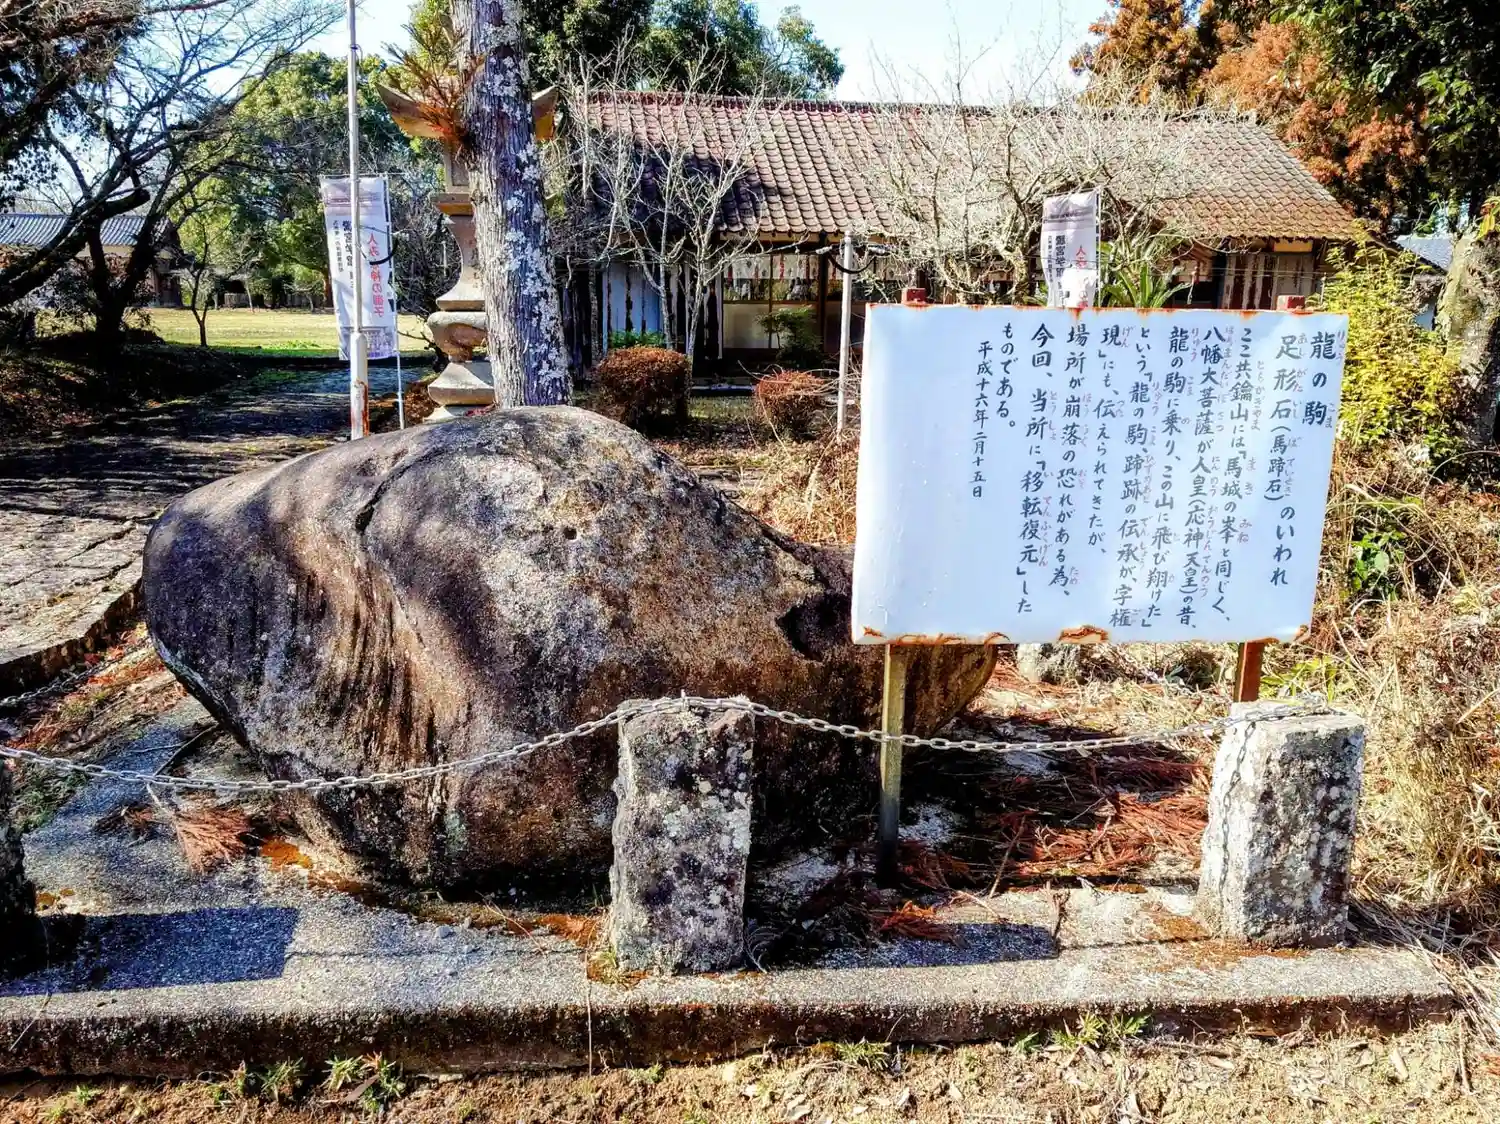 龍の駒
足形石（馬蹄石）のいわれ
ここ共鑰山には『馬城の峯と同じく、
八幡大菩薩が人皇（応神天皇）の昔、
龍の駒に乗り、この山に飛び翔けた』
という『龍の駒、蹄跡の伝承が、字権
現』にも、伝えられてきたが、
場所が崩落の恐れがある為、
今回、当所に『移転復元』した
ものである。
平成十六年二月十五日